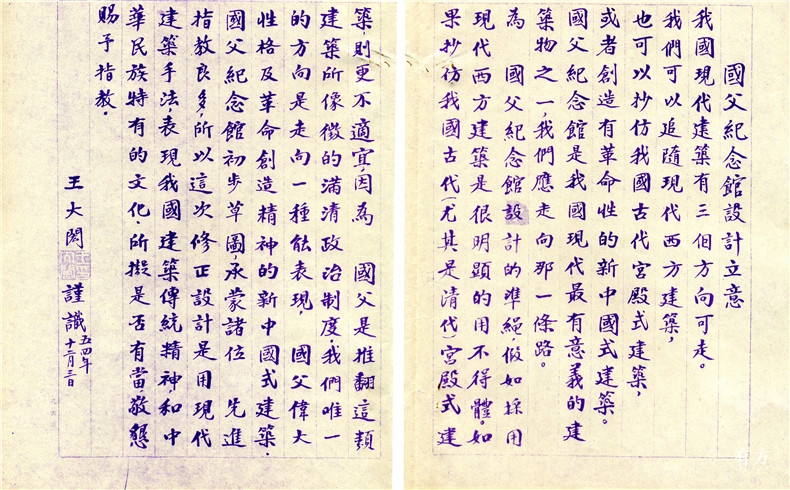 國父紀念館設計立意
我國現代建築有三個方向可走。
我們可以追隨現代西方建築，
也可以抄仿我國古代宮殿式建築，
或者創造有革命性的新中國式建築。
國父紀念館是我國現代最有意義的建
築物之一，我們應走向那一條路。
為　國父紀念館設計的準繩，假如採用
現代西方建築是很明顯的用不得體。如
果抄仿我國古代（尤其是清代）宮殿式建
築，則更不適宜，因為　國父是推翻這類
建築所像徵的滿清政治制度，我們唯一
的方向是走向一種能表現，國父偉大
性格及革命創造精神的新中國式建築．
國父紀念館初步草圖，承蒙諸位　先進
指教良多，所以這次修正設計是用現代
建築手法，表現我國建築傳統精神，和中
華民族特有的文化．所擬是否有當敬懇
賜予指教．
王大閎　謹識　五四年十二月三日